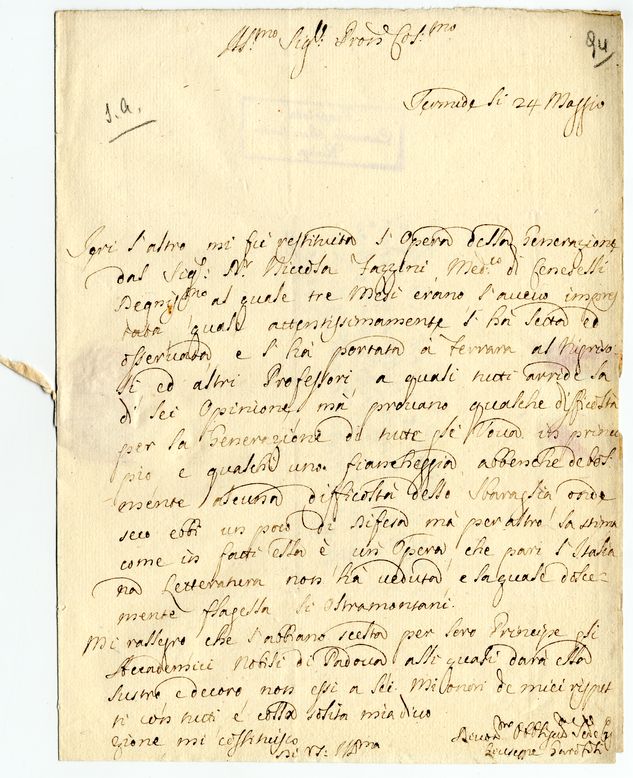 Ill.mo Sig.r Prone Col.mo
94
J.A.
Sermide li 24 Maggio
Ieri l'altro mi fù restituita l'Opera della Generazione
dal Sig.r Dr. Niccola Fazzini, Med.co di Ceneselli
Degniss.mo al quale tre Mesi erano l'avevo impres
tata quale attentissimamente l'hà letta ed
osservata, e l'hà portata à Ferrara al
ed altri Professori, a quali tutti arride la
di lei Opinione, mà provano qualche difficoltà
per la Generazione di tutte gli Uova in princi
pio e qualch'uno fiancheggia abbenche debol
mente alcuna difficoltà dello Sbaraglia onde
seco ebbi un poco di difesa mà per altro la stima
come in fatti ella è un Opera che pari l'Italia
na Letteratura non hà veduta e la quale dolce-
mente flagella li Oltramontani.
Mi rallegro che l'abbiano scelta per loro Principe gli
Accademici Nobili di Padova alli quali darà ella
lustro e decoro non essi a lei. Mi onori de miei rispet
ti con tutti e colla solita mia divo
zione mi costituisco
Di V.S. Ill.ma
Giuseppe